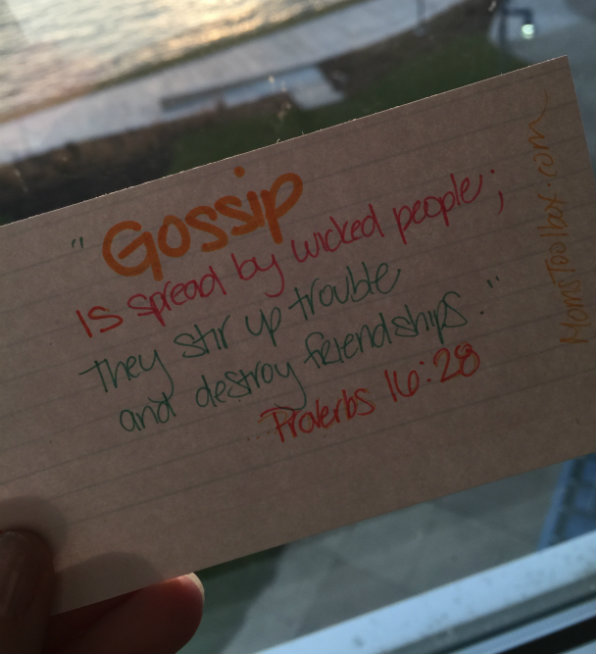 "Gossip
is spread by wicked people;
they stir up trouble
and destroy friendships."
Proverbs 16:28
MomsToolbox.com